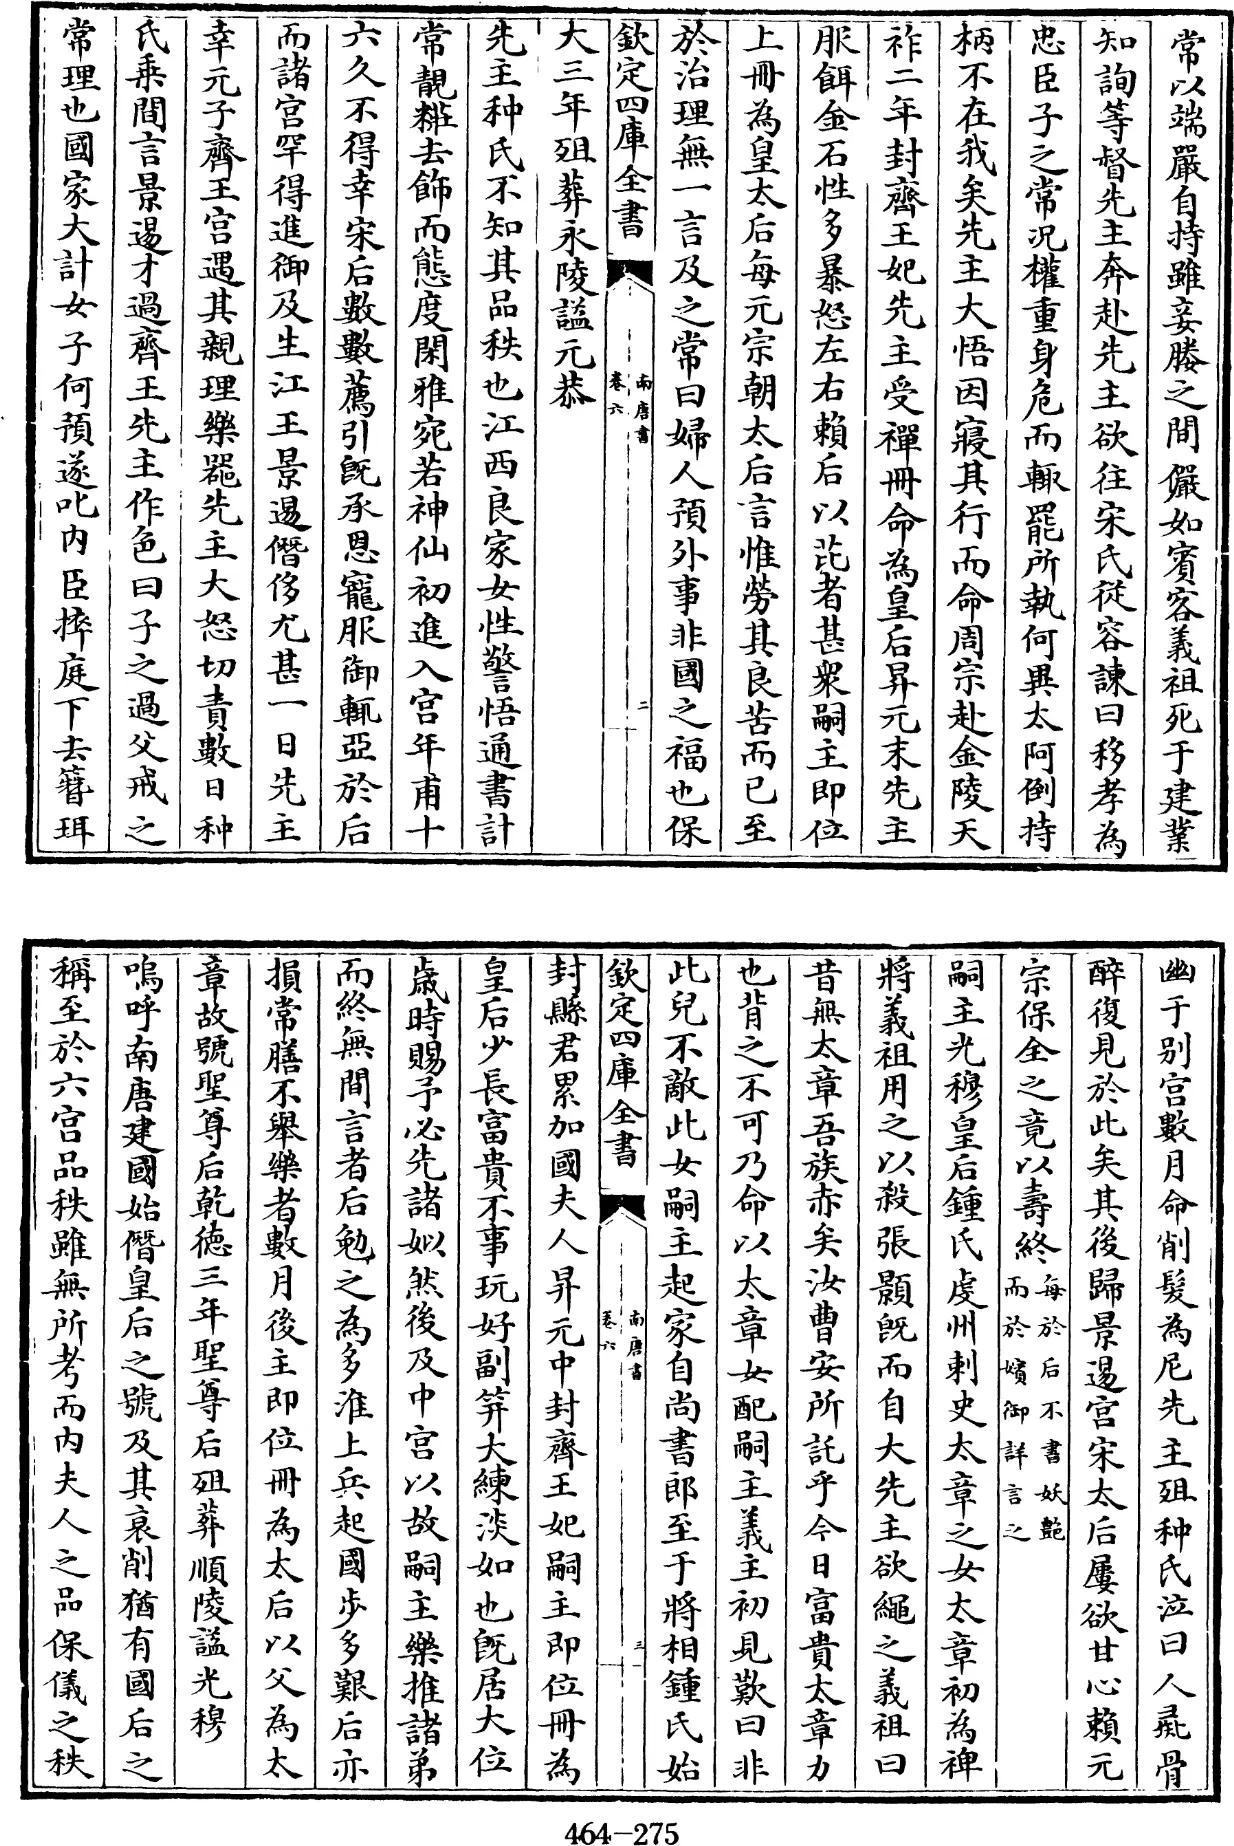 常以端嚴自持雖妾媵之間儼如賓客義祖死于建業
知詢等督先主奔赴先主欲往宋氏從容諫曰移孝為
忠臣子之常況權重身危而輙罷所執何異太阿倒持
柄不在我矣先主大悟因寢其行而命周宗赴金陵天
祚二年封齊王妃先主受禪冊命為皇后昇元末先主
服餌金石性多暴怒左右賴后以茈者甚衆嗣主即位
上冊為皇太后每元宗朝太后言惟勞其良苦而已至
於治理無一言及之常曰婦人預外事非國之福也保
欽定四庫全書
南唐書
卷六
二
大三年殂葬永陵諡元恭
先主种氏不知其品秩也江西良家女性警悟通書計
常靚糚去飾而態度閑雅宛若神仙初進入宫年甫十
六久不得幸宋后數數薦引旣承恩寵服御輒亞於后
而諸宫罕得進御及生江王景逷僭侈尤甚一日先主
幸元子齊王宫遇其親理樂器先主大怒切責數日种
氏乘間言景逷才過齊王先主作色曰子之過父戒之
常理也國家大計女子何預遂叱内臣捽庭下去簪珥
幽于别宫數月命削髮為尼先主殂种氏泣曰人彘骨
醉復見於此矣其後歸景逷宫宋太后屢欲甘心賴元
宗保全之竟以壽終每於后不書妖艶
而於嬪御詳言之
嗣主光穆皇后鍾氏虔州刺史太章之女太章初為禆
將義祖用之以殺張顥旣而自大先主欲繩之義祖曰
昔無太章吾族赤矣汝曹安所託乎今日富貴太章力
也背之不可乃命以太章女配嗣主義主初見歎曰非
此兒不敵此女嗣主起家自尚書郎至于將相鍾氏始
欽定四庫全書
南唐書
卷六
三
封縣君累加國夫人昇元中封齊王妃嗣主即位冊為
皇后少長富貴不事玩好副笄大練淡如也旣居大位
歲時賜予必先諸姒然後及中宫以故嗣主樂推諸弟
而終無間言者后勉之為多淮上兵起國步多艱后亦
損常膳不舉樂者數月後主即位冊為太后以父為太
章故號聖尊后乾徳三年聖尊后殂葬順陵諡光穆
嗚呼南唐建國始僭皇后之號及其衰削猶有國后之
稱至於六宫品秩雖無所考而内夫人之品保儀之秩
464-275